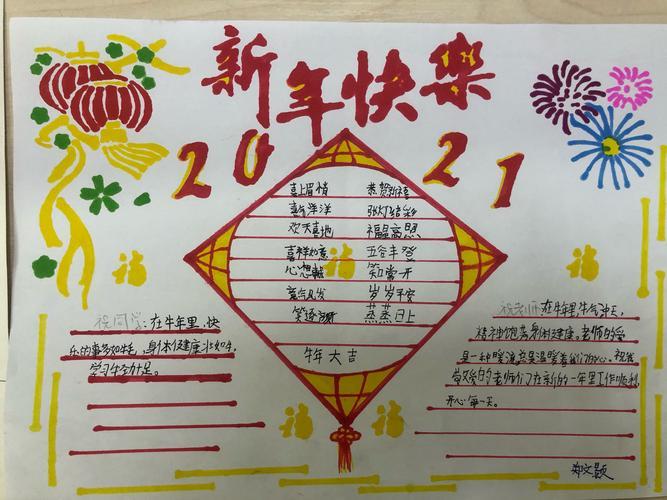 新年快樂
2021
喜上眉梢 恭贺新禧
喜气洋洋 张灯结彩
欢天喜地 福星高照
吉祥如意 五谷丰登
心想事 知常开
意气风发 岁岁平安
笑逐颜开 蒸蒸日上
牛年大吉
福
福
福
福
福
祝同学:在牛年里,快
乐的事多如牛毛,身体健康壮如牛,
学习牛劲十足。
祝老师:在牛年里牛气冲天,
精神饱满身体健康。老师的爱
是一种暖流,总是温暖着我们的心。祝我
敬爱的老师们在新的一年里工作顺利,
开心每一天。
郑文颢